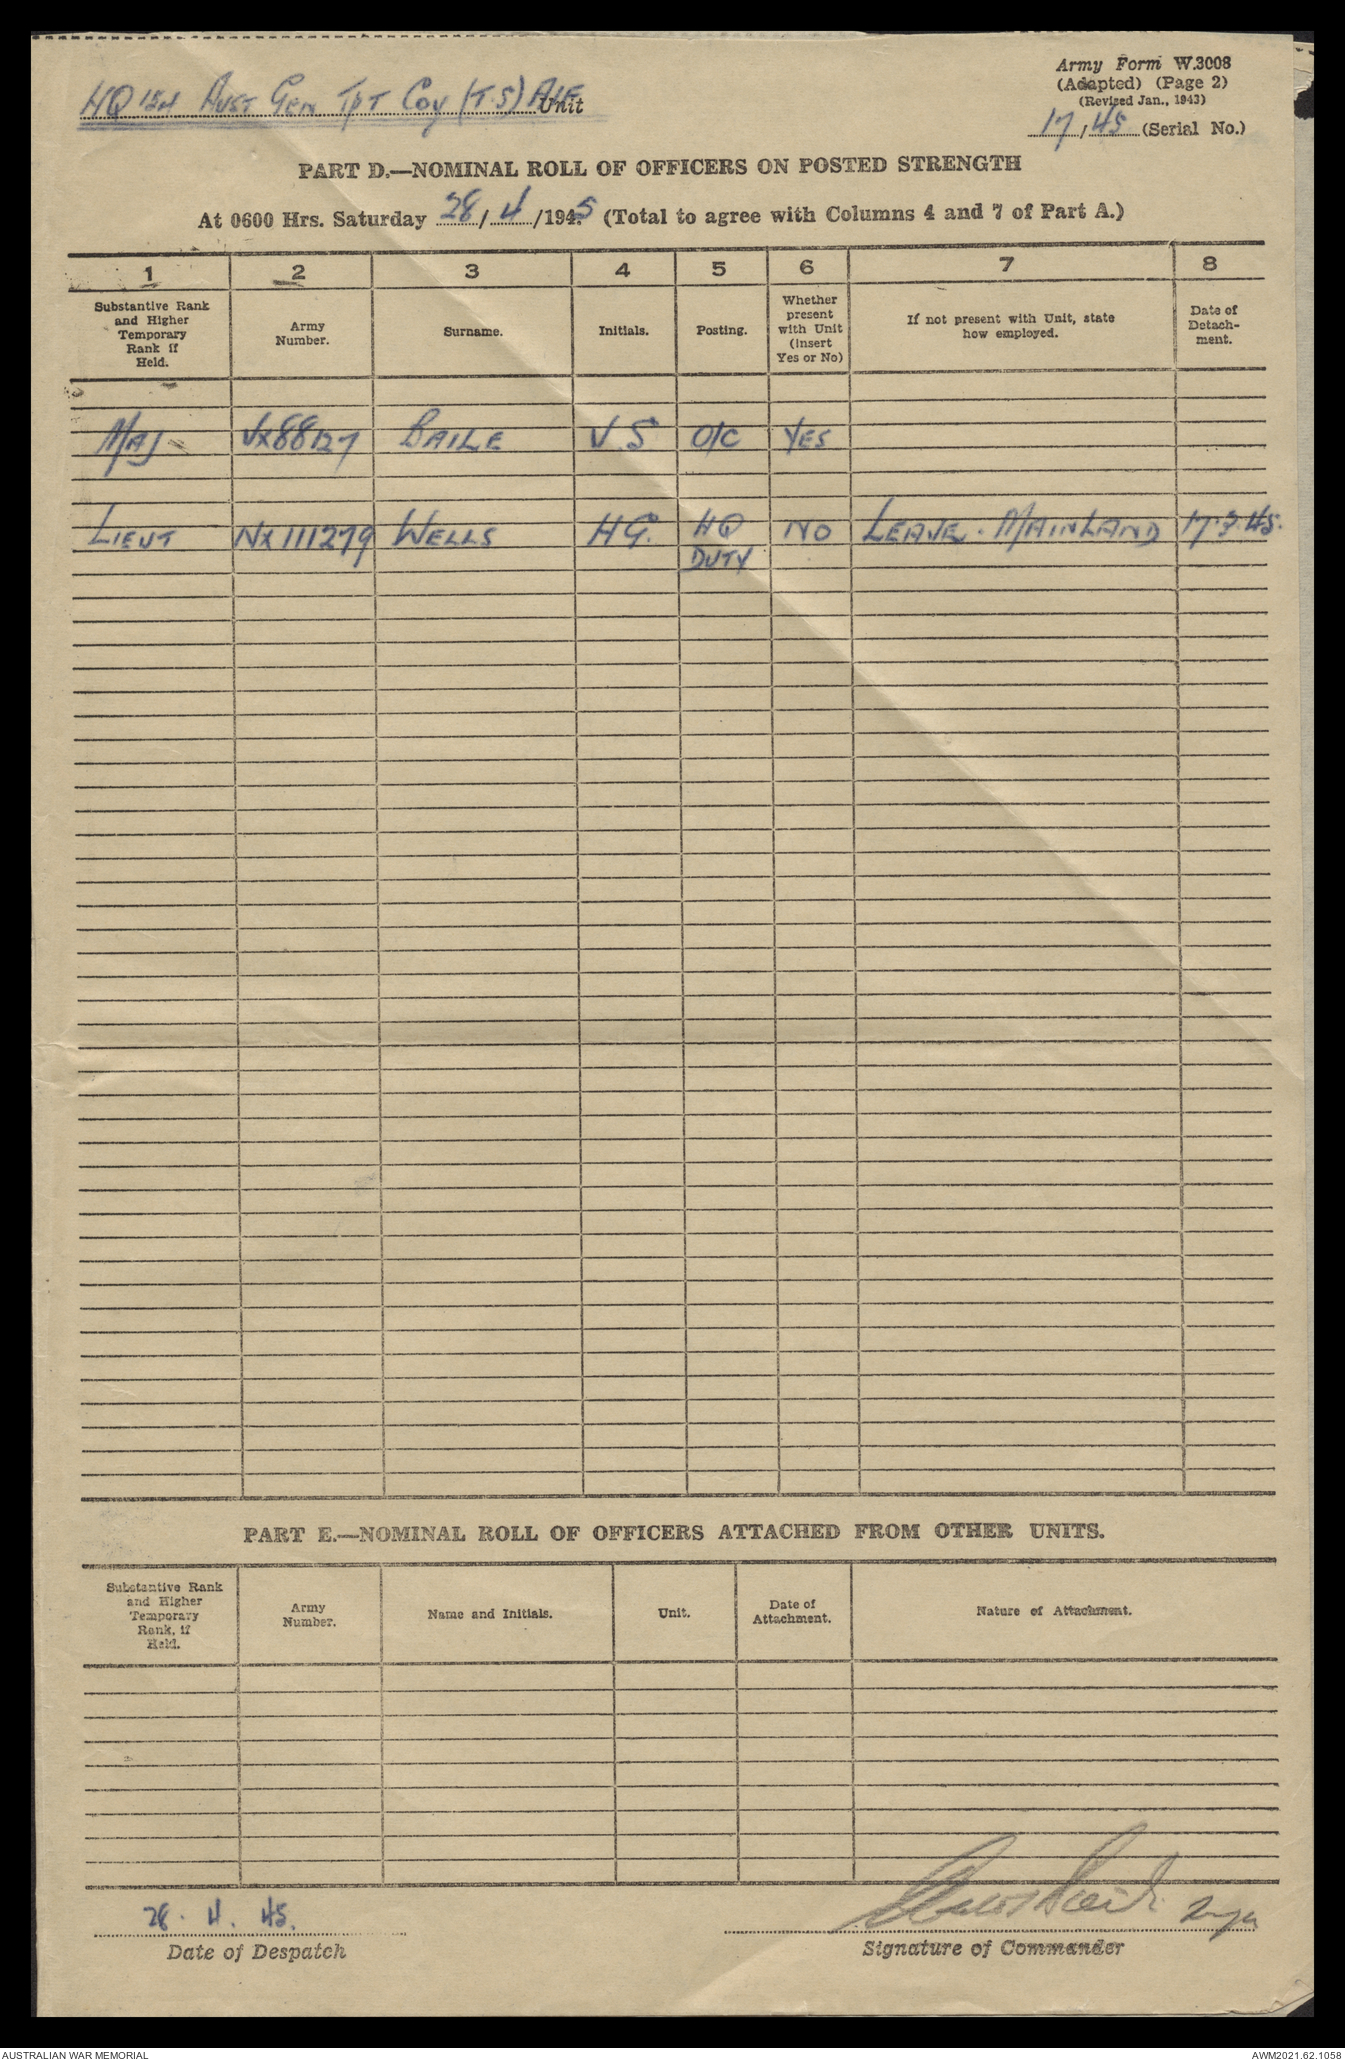 Army Form W.3008
(Adapted) (Page 2)
(Revised Jan., 1943)
HQ 154 Aust Gen Tpt Coy (TS) AIF Unit
17/45 (Serial No.)
PART D.—NOMINAL ROLL OF OFFICERS ON POSTED STRENGTH
At 0600 Hrs. Saturday 28/4/1945 (Total to agree with Columns 4 and 7 of Part A.)
1 2 3 4 5 6 7 8
Substantive Rank and Higher Temporary Rank if Held. Army Number. Surname. Initials. Posting. Whether present with Unit (insert Yes or No) If not present with Unit, state how employed. Date of Detach-ment.
MAJ VX88127 BAILE V.S O/C YES
LIEUT NX111279 WELLS HG. HQ DUTY NO LEAVE. MAINLAND 17.3.45.
PART E.—NOMINAL ROLL OF OFFICERS ATTACHED FROM OTHER UNITS.
Substantive Rank and Higher Temporary Rank, if Held. Army Number. Name and Initials. Unit. Date of Attachment. Nature of Attachment.
28. 4. 45.
Date of Despatch
Signature of Commander
AUSTRALIAN WAR MEMORIAL
AWM2021.62.1058